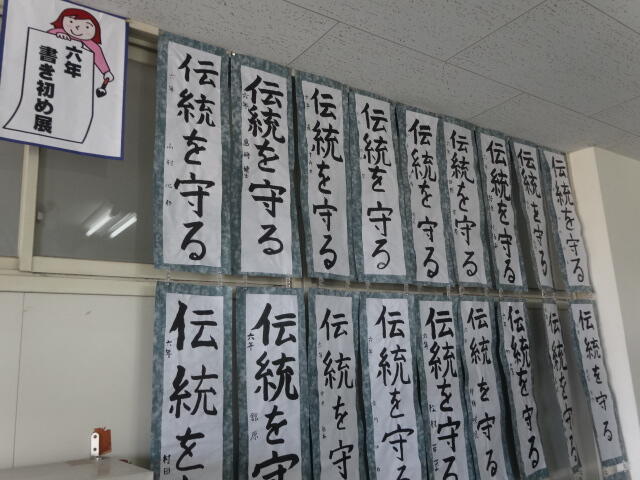 六年
書き初め展
伝統を守る
伝統を守る
伝統を守る
伝統を守る
伝統を守る
伝統を守る
伝統を守る
伝統を守る
伝統を守る
六年
伝統を
村田
六年
伝統を守
伝統を守
伝統を守
伝統を守る
伝統を守る
伝統を守る
伝統を守る
伝統を守る